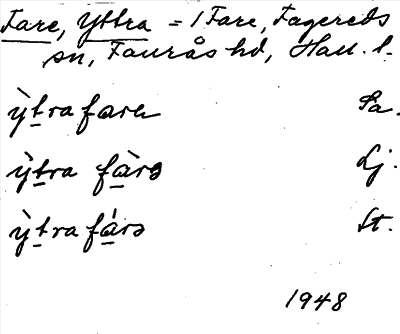 Fare, Yttra = 1 Fare, Fagereds
sn, Faurås hd, Hall. l.
ỳtra farə Sa.
ỳtra fàrə Lj.
ỳtra fárə St.
1948